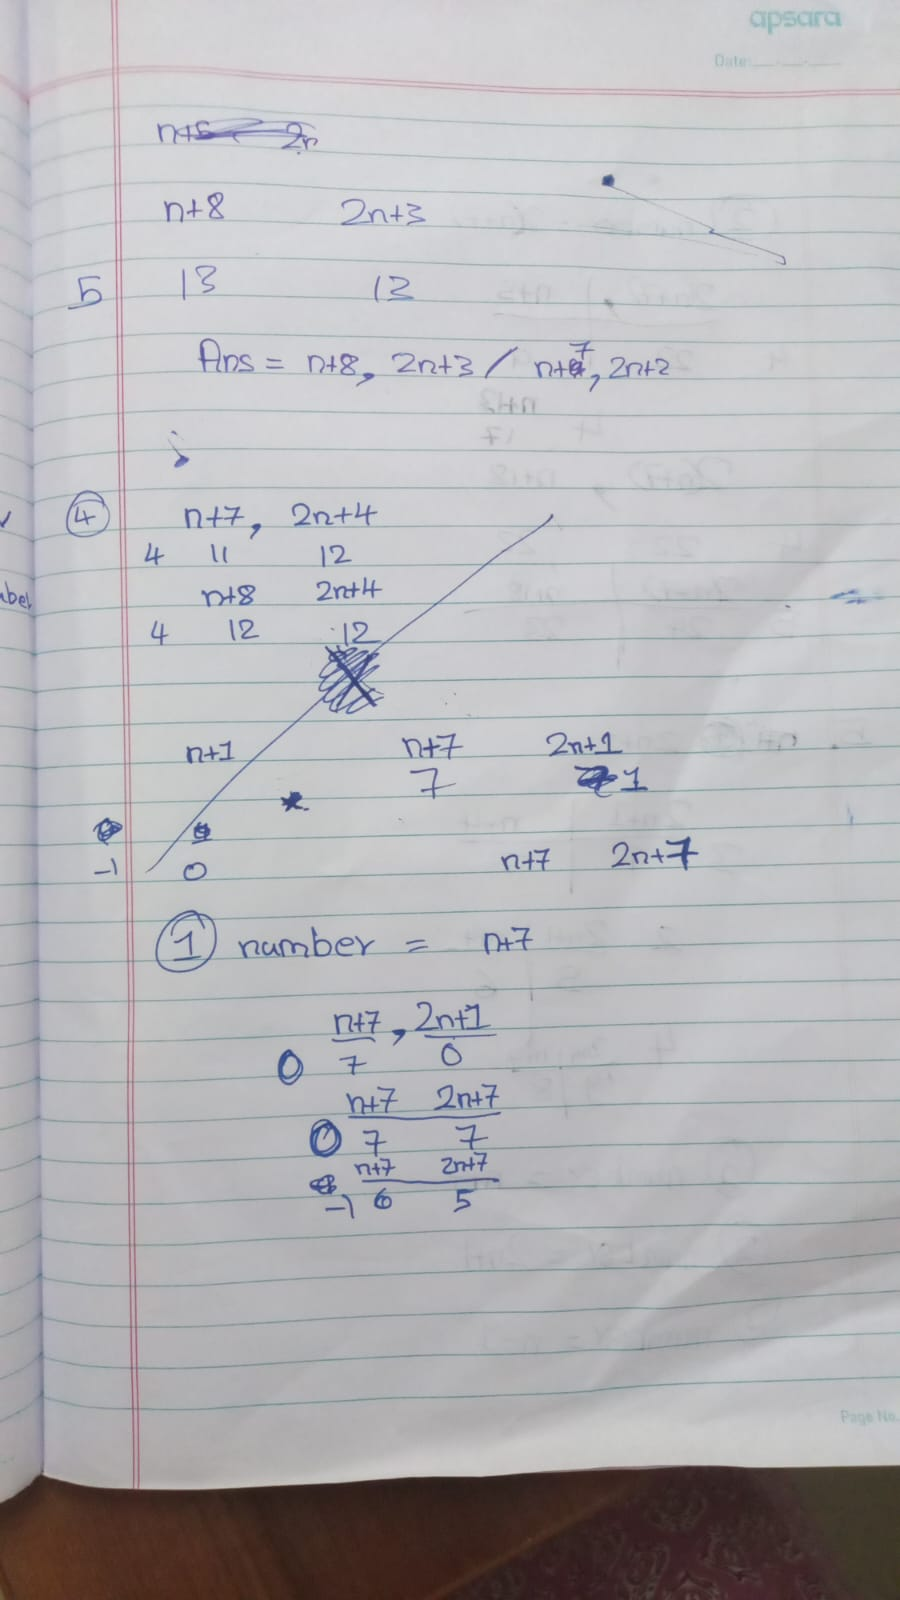 apsara
Date:
n+8 2n+3
5 13 13
Ans = n+8, 2n+3 / n+7, 2n+2
4 n+7, 2n+4
4 11 12
n+8 2n+4
4 12 12
n+1 n+7 2n+1
7 1
-1 0 n+7 2n+7
1 number = n+7
n+7, 2n+1
0 7 0
n+7 2n+7
0 7 7
n+7 2n+7
-1 6 5
Page No.